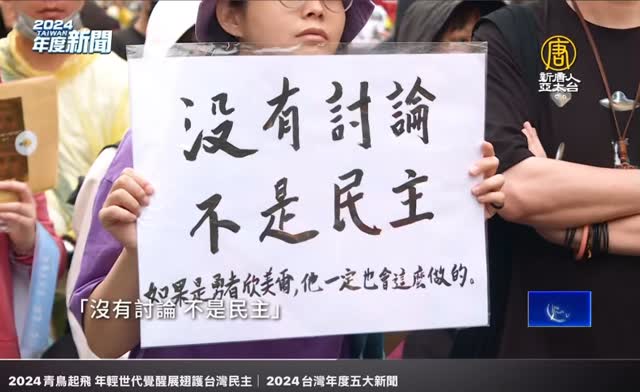 2024
TAIWAN
年度新聞
唐
新唐人
亞太台
没有討論
不是民主
如果是勇者欣美爾,他一定也會這麽做的。
「沒有討論 不是民主」
2024青鳥起飛 年輕世代覺醒展翅護台灣民主｜2024台灣年度五大新聞